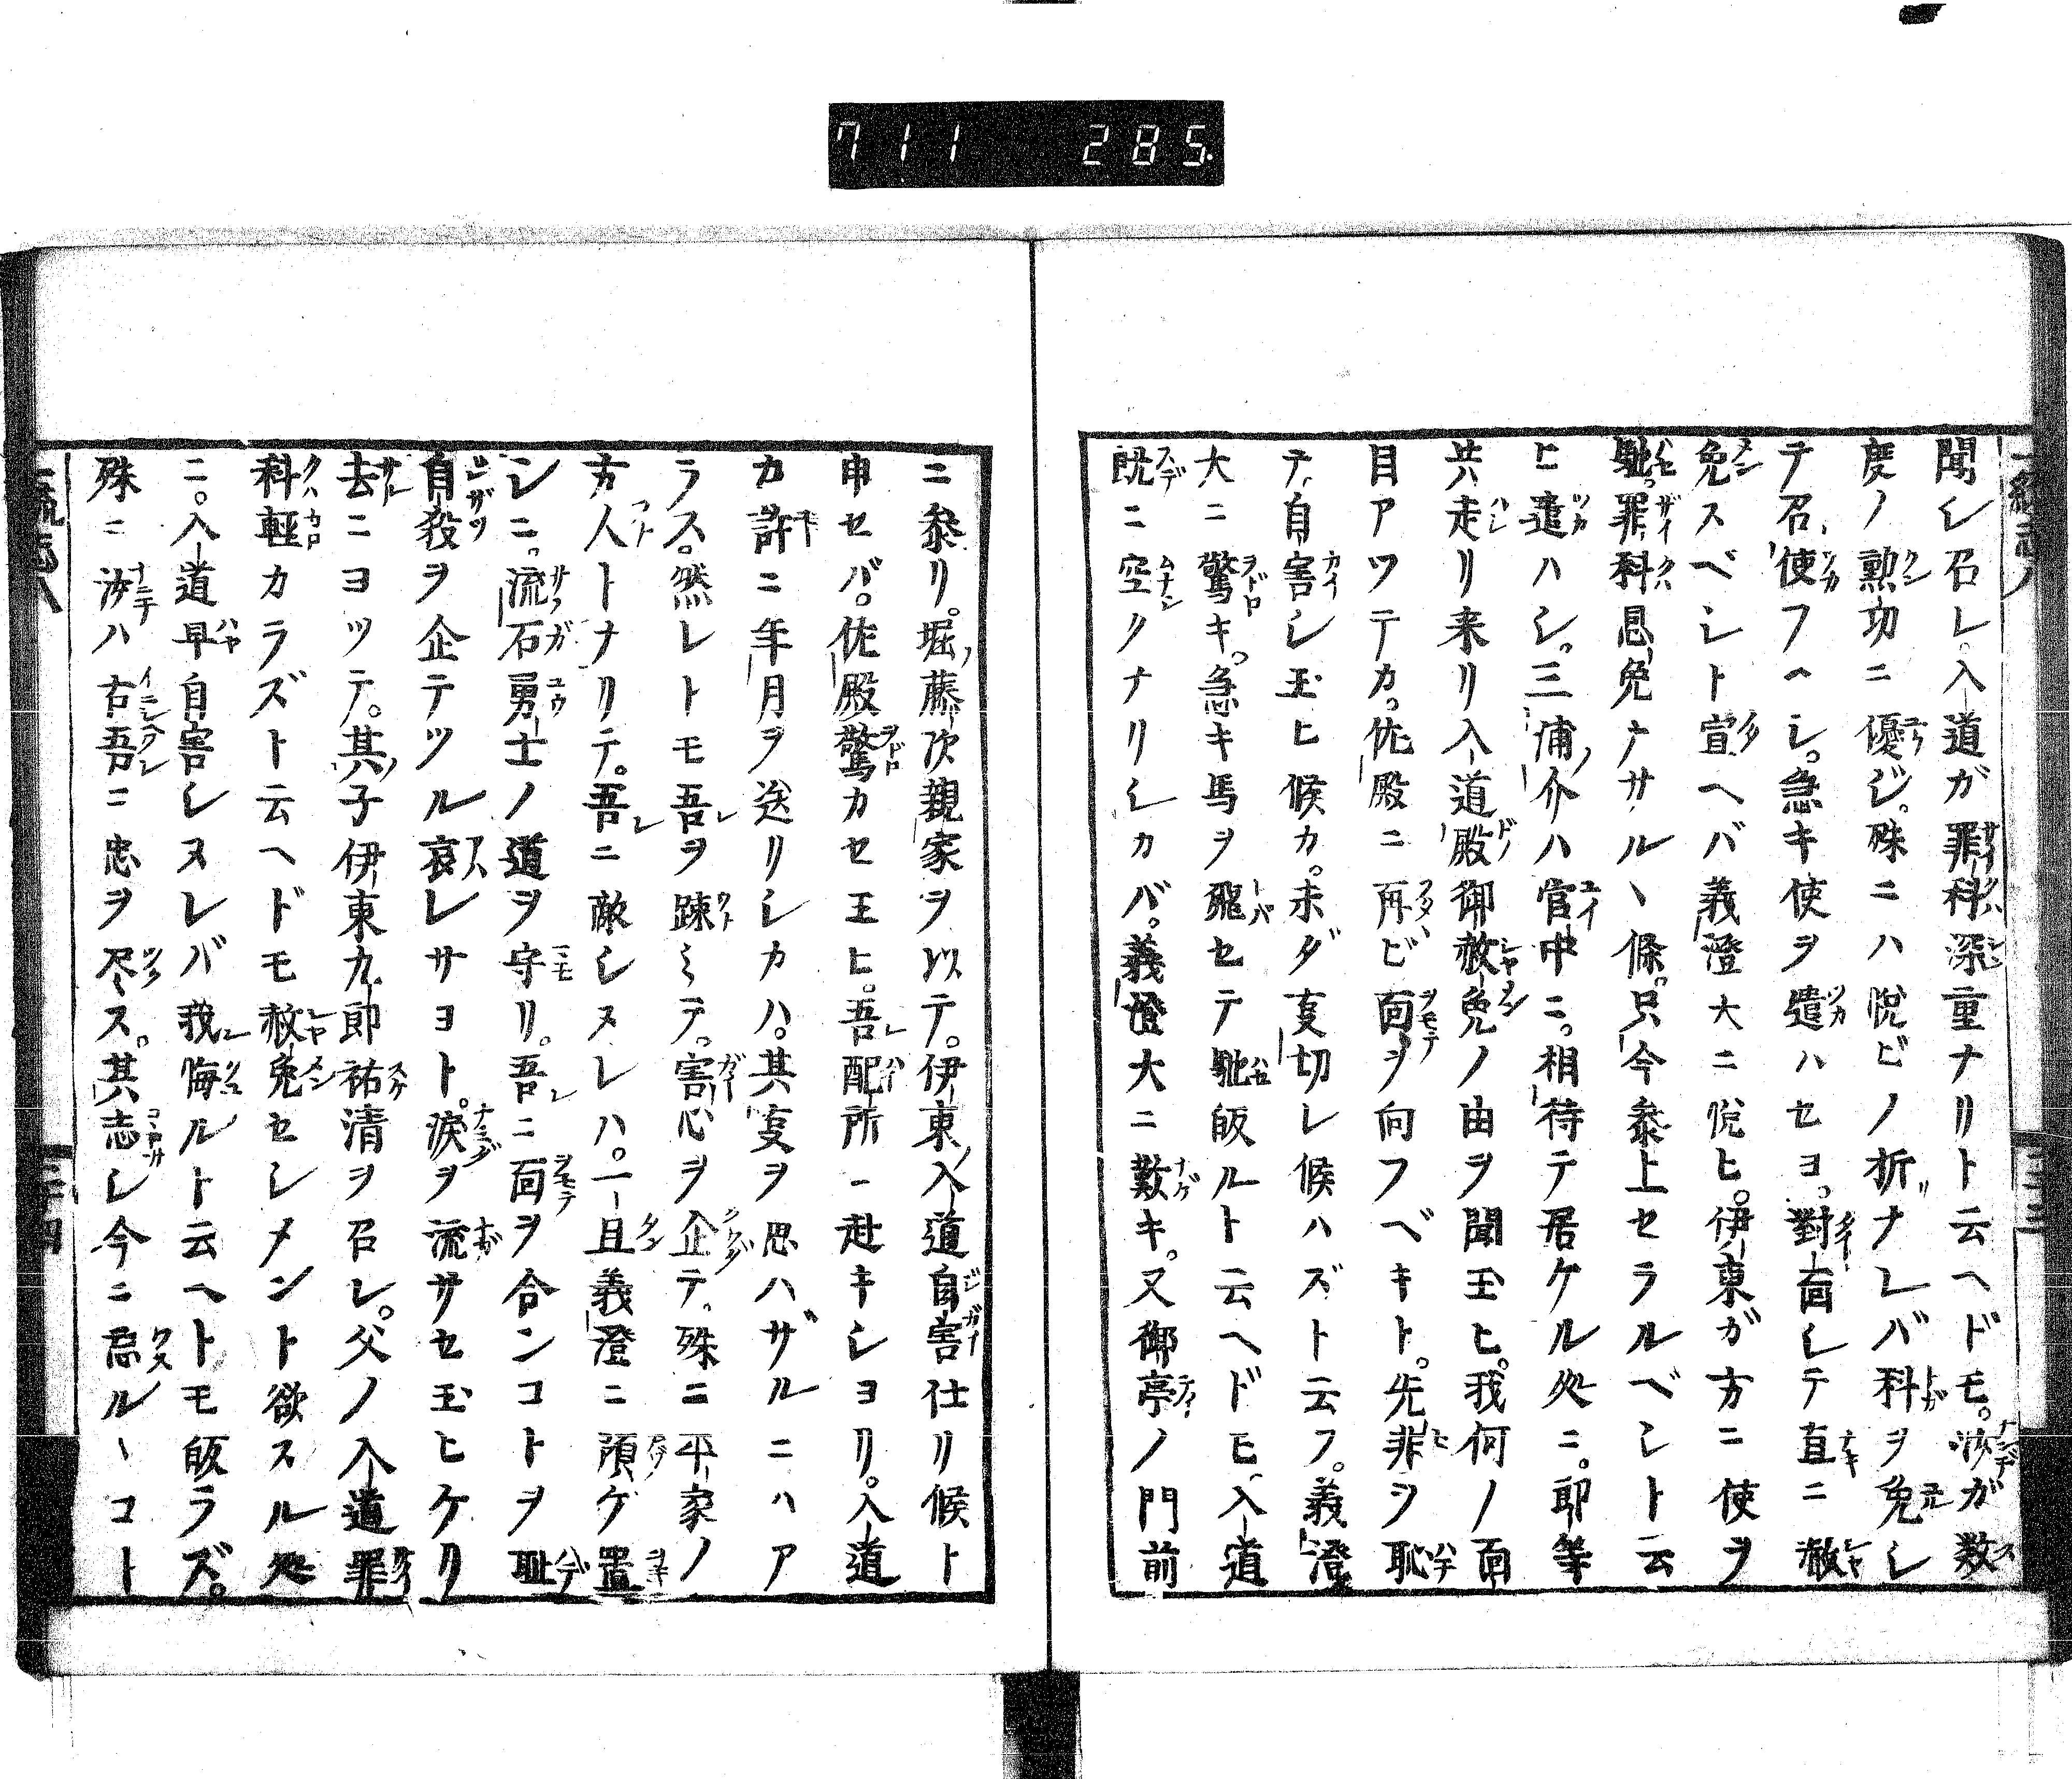 711 285.
聞シ召レ。入道ガ罪科深重ナリト云ヘドモ。汝ガ数
度ノ勲功ニ優ジ。殊ニハ悦ビノ折ナレバ科ヲ免シ
テ召使フヘシ。急キ使ヲ遣ハセヨ。對面シテ直ニ赦
免スベシト宣ヘバ義澄大ニ悦ヒ。伊東ガ方ニ使ヲ
馳。罪科恩免ナサルヽ條。只今参上セラルベシト云
ヒ遣ハシ。三浦介ハ官中ニ。相待テ居ケル処ニ。郎等
共走リ来リ入道殿御赦免ノ由ヲ聞玉ヒ。我何ノ面
目アツテカ。佐殿ニ再ビ面ヲ向フベキト。先非ヲ恥
テ。自害シ玉ヒ候カ。未ダ事切レ候ハズト云フ。義澄
大ニ驚キ。急キ馬ヲ飛セテ馳皈ルト云ヘドモ、入道
既ニ空クナリシカバ。義澄大ニ歎キ。又御亭ノ門前
ニ参リ。堀藤次親家ヲ以テ。伊東入道自害仕リ候ト
申セバ。佐殿驚カセ玉ヒ。吾配所ニ赴キシヨリ。入道
カ許ニ年月ヲ送リシカハ。其事ヲ思ハザルニハア
ラス。然レトモ吾ヲ踈ミテ。害心ヲ企テ。殊ニ平家ノ
方人トナリテ。吾ニ敵シヌレハ。一旦義澄ニ預ゲ置
シニ。流石勇士ノ道ヲ守リ。吾ニ面ヲ合ンコトヲ恥
自殺ヲ企テツル哀レサヨト。涙ヲ流サセ玉ヒケリ
去ニヨツテ。其子伊東九郎祐清ヲ召レ。父ノ入道罪
科軽カラズト云ヘドモ赦免セシメント欲スル処
ニ。入道早自害シヌレバ我悔ルト云ヘトモ皈ラズ。
殊ニ汝ハ古吾ニ忠ヲ尽ス。其志シ今ニ忘ルヽコト